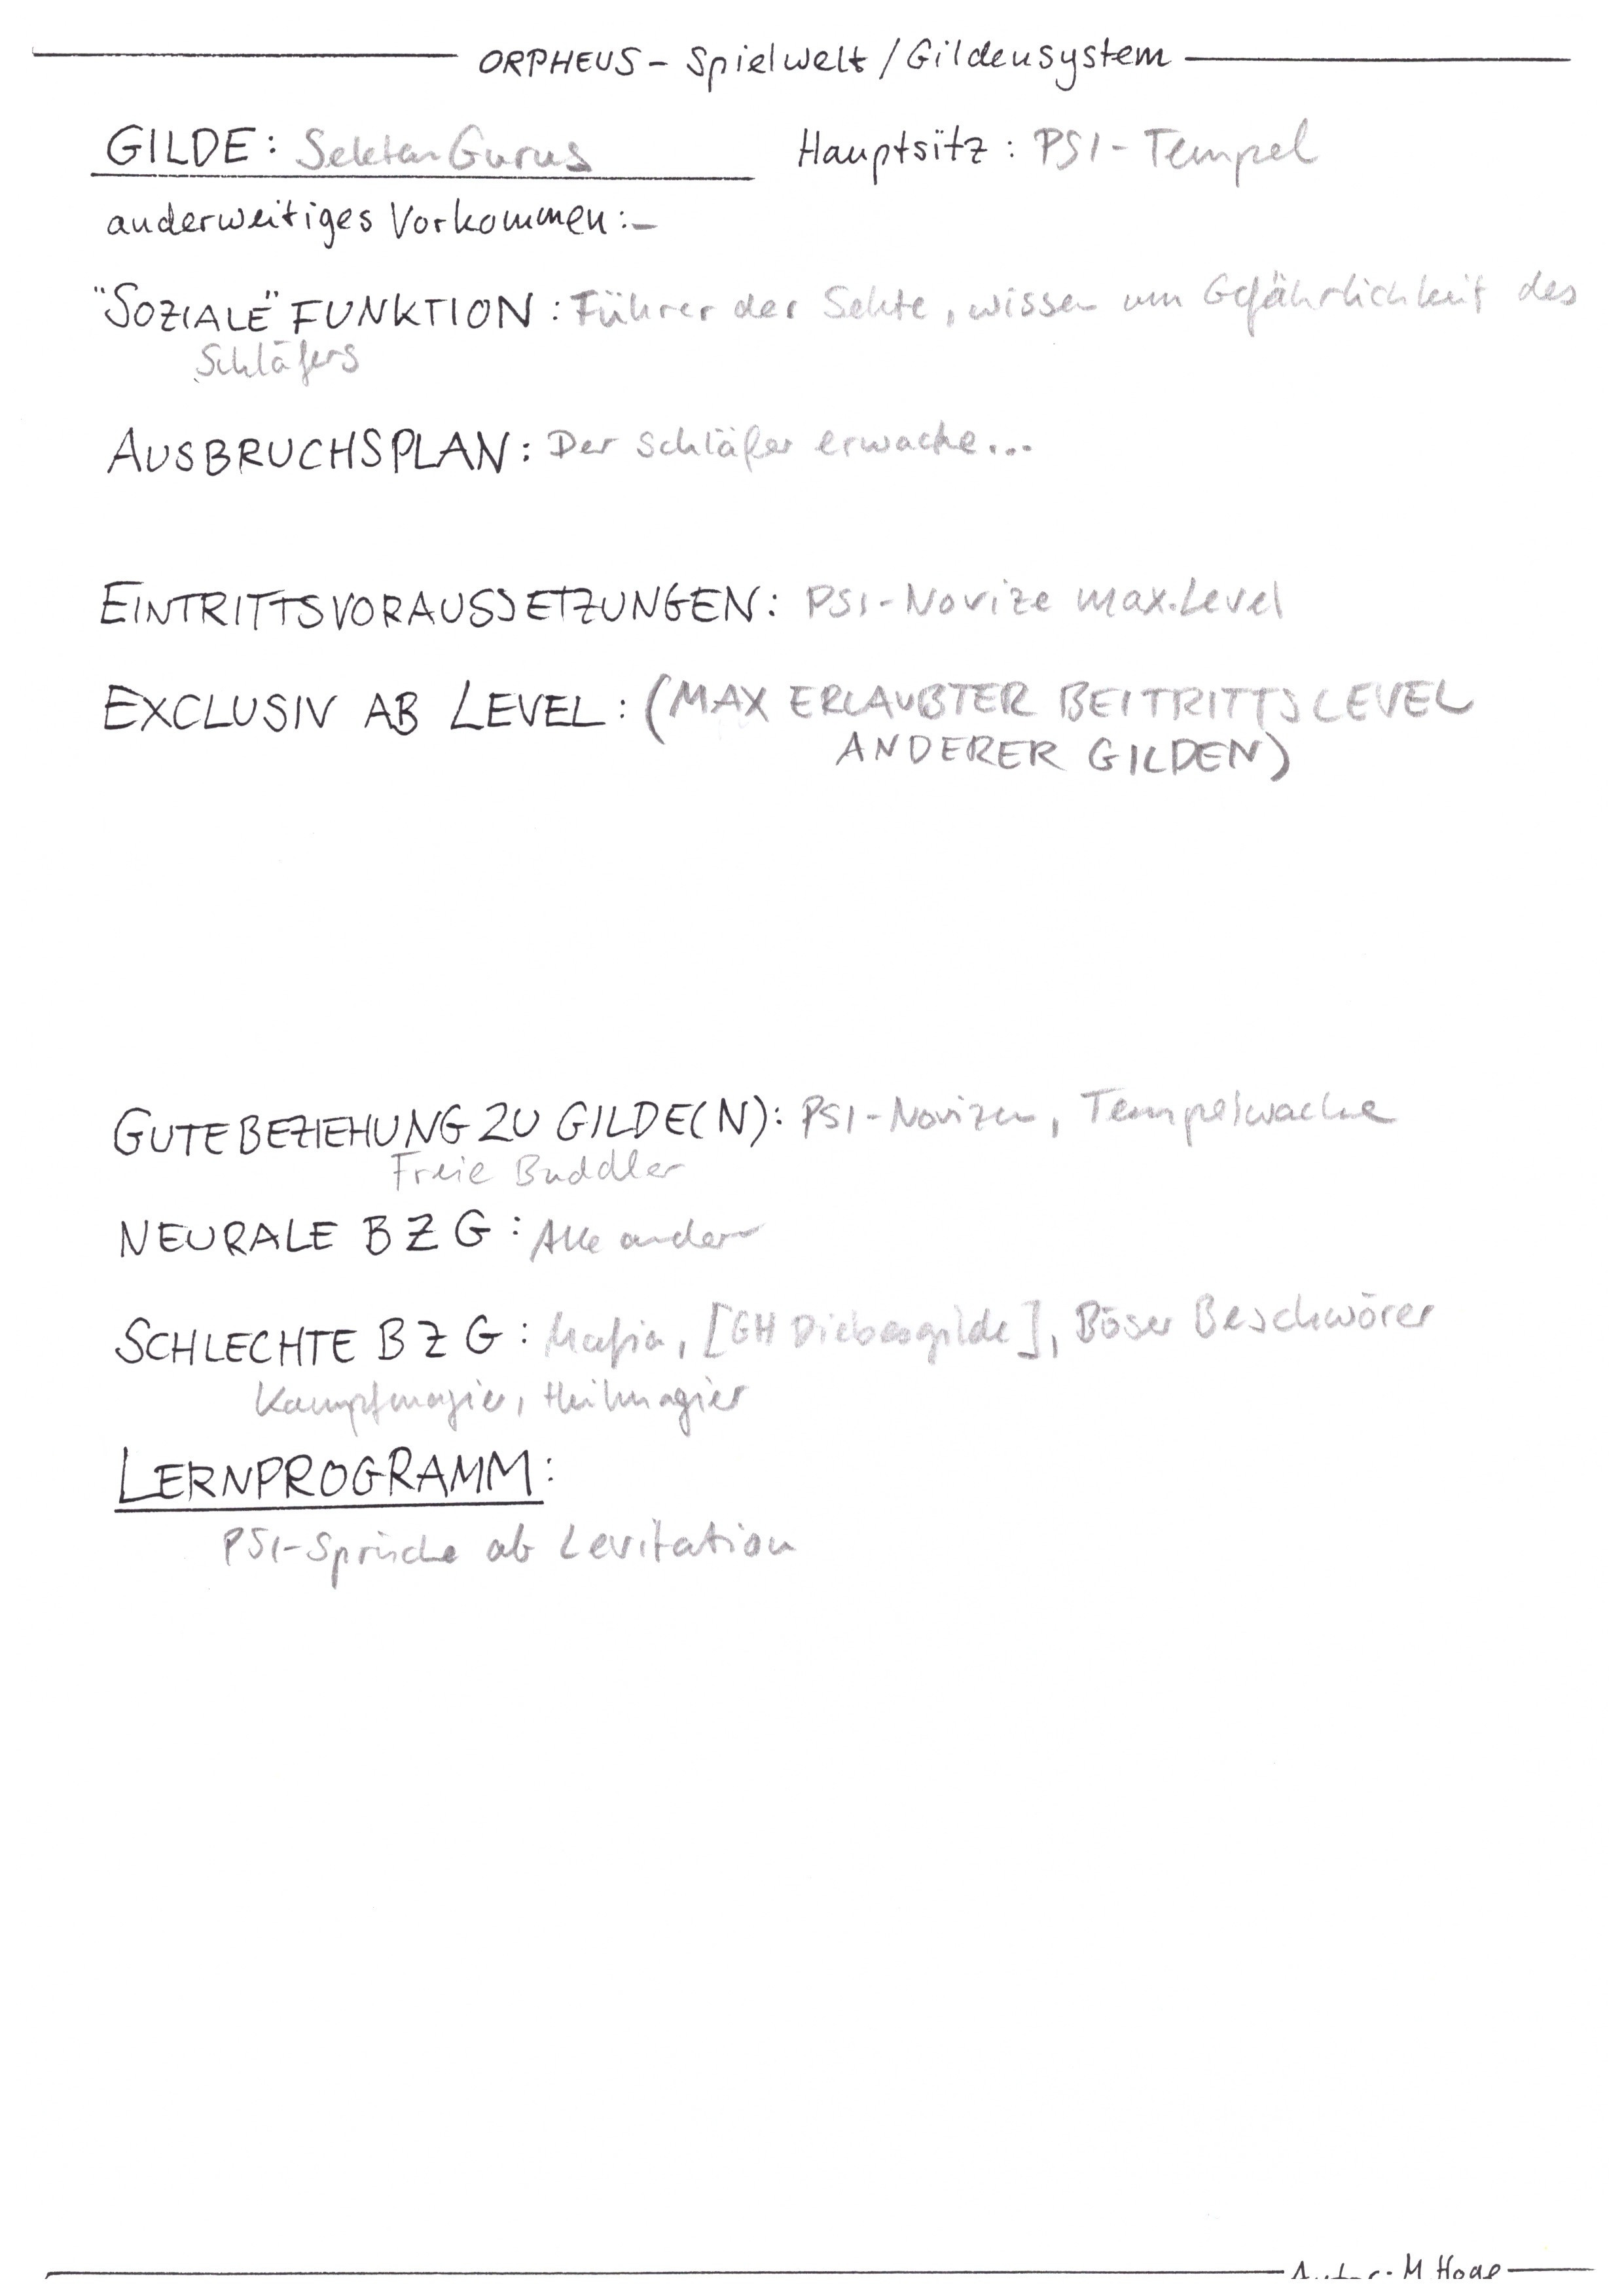 ORPHEUS - Spielwelt / Gildensystem
GILDE: Sekten Gurus Hauptsitz: PSI-Tempel
anderweitiges Vorkommen: -
"SOZIALE" FUNKTION: Führer der Sekte, wissen um Gefährlichkeit des
Schläfers
AUSBRUCHSPLAN: Der Schläfer erwache...
EINTRITTSVORAUSSETZUNGEN: PSI-Novize max. Level
EXCLUSIV AB LEVEL: (MAX ERLAUBTER BEITRITTSLEVEL
ANDERER GILDEN)
GUTE BEZIEHUNG ZU GILDE(N): PSI-Novizen, Tempelwache
Freie Buddler
NEURALE BZG: Alle andern
SCHLECHTE BZG: Mafia, [GH Diebesgilde], Böser Beschwörer
Kampfmagier, Heilmagier
LERNPROGRAMM:
PSI-Sprüche ab Levitation
Autor: M. Hoge